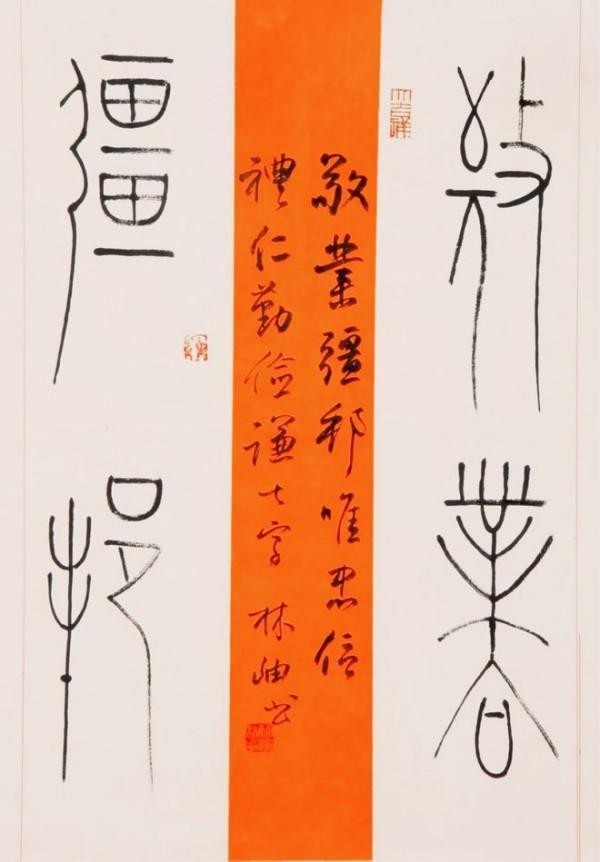 敬業
敬業彊邦唯忠信
禮仁勤儉謙七字 林岫书
彊邦